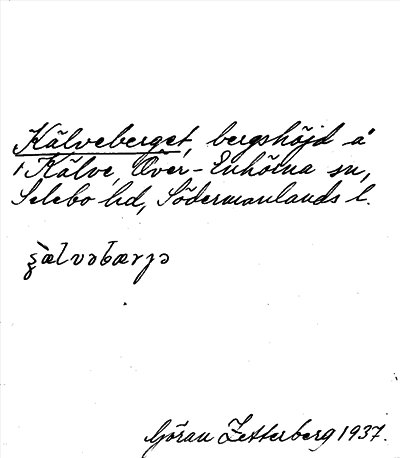 Kälveberget, bergshöjd å
Kälve, Över-Enhörna sn,
Selebo hd, Södermanlands l.
Göran Zetterberg 1937.